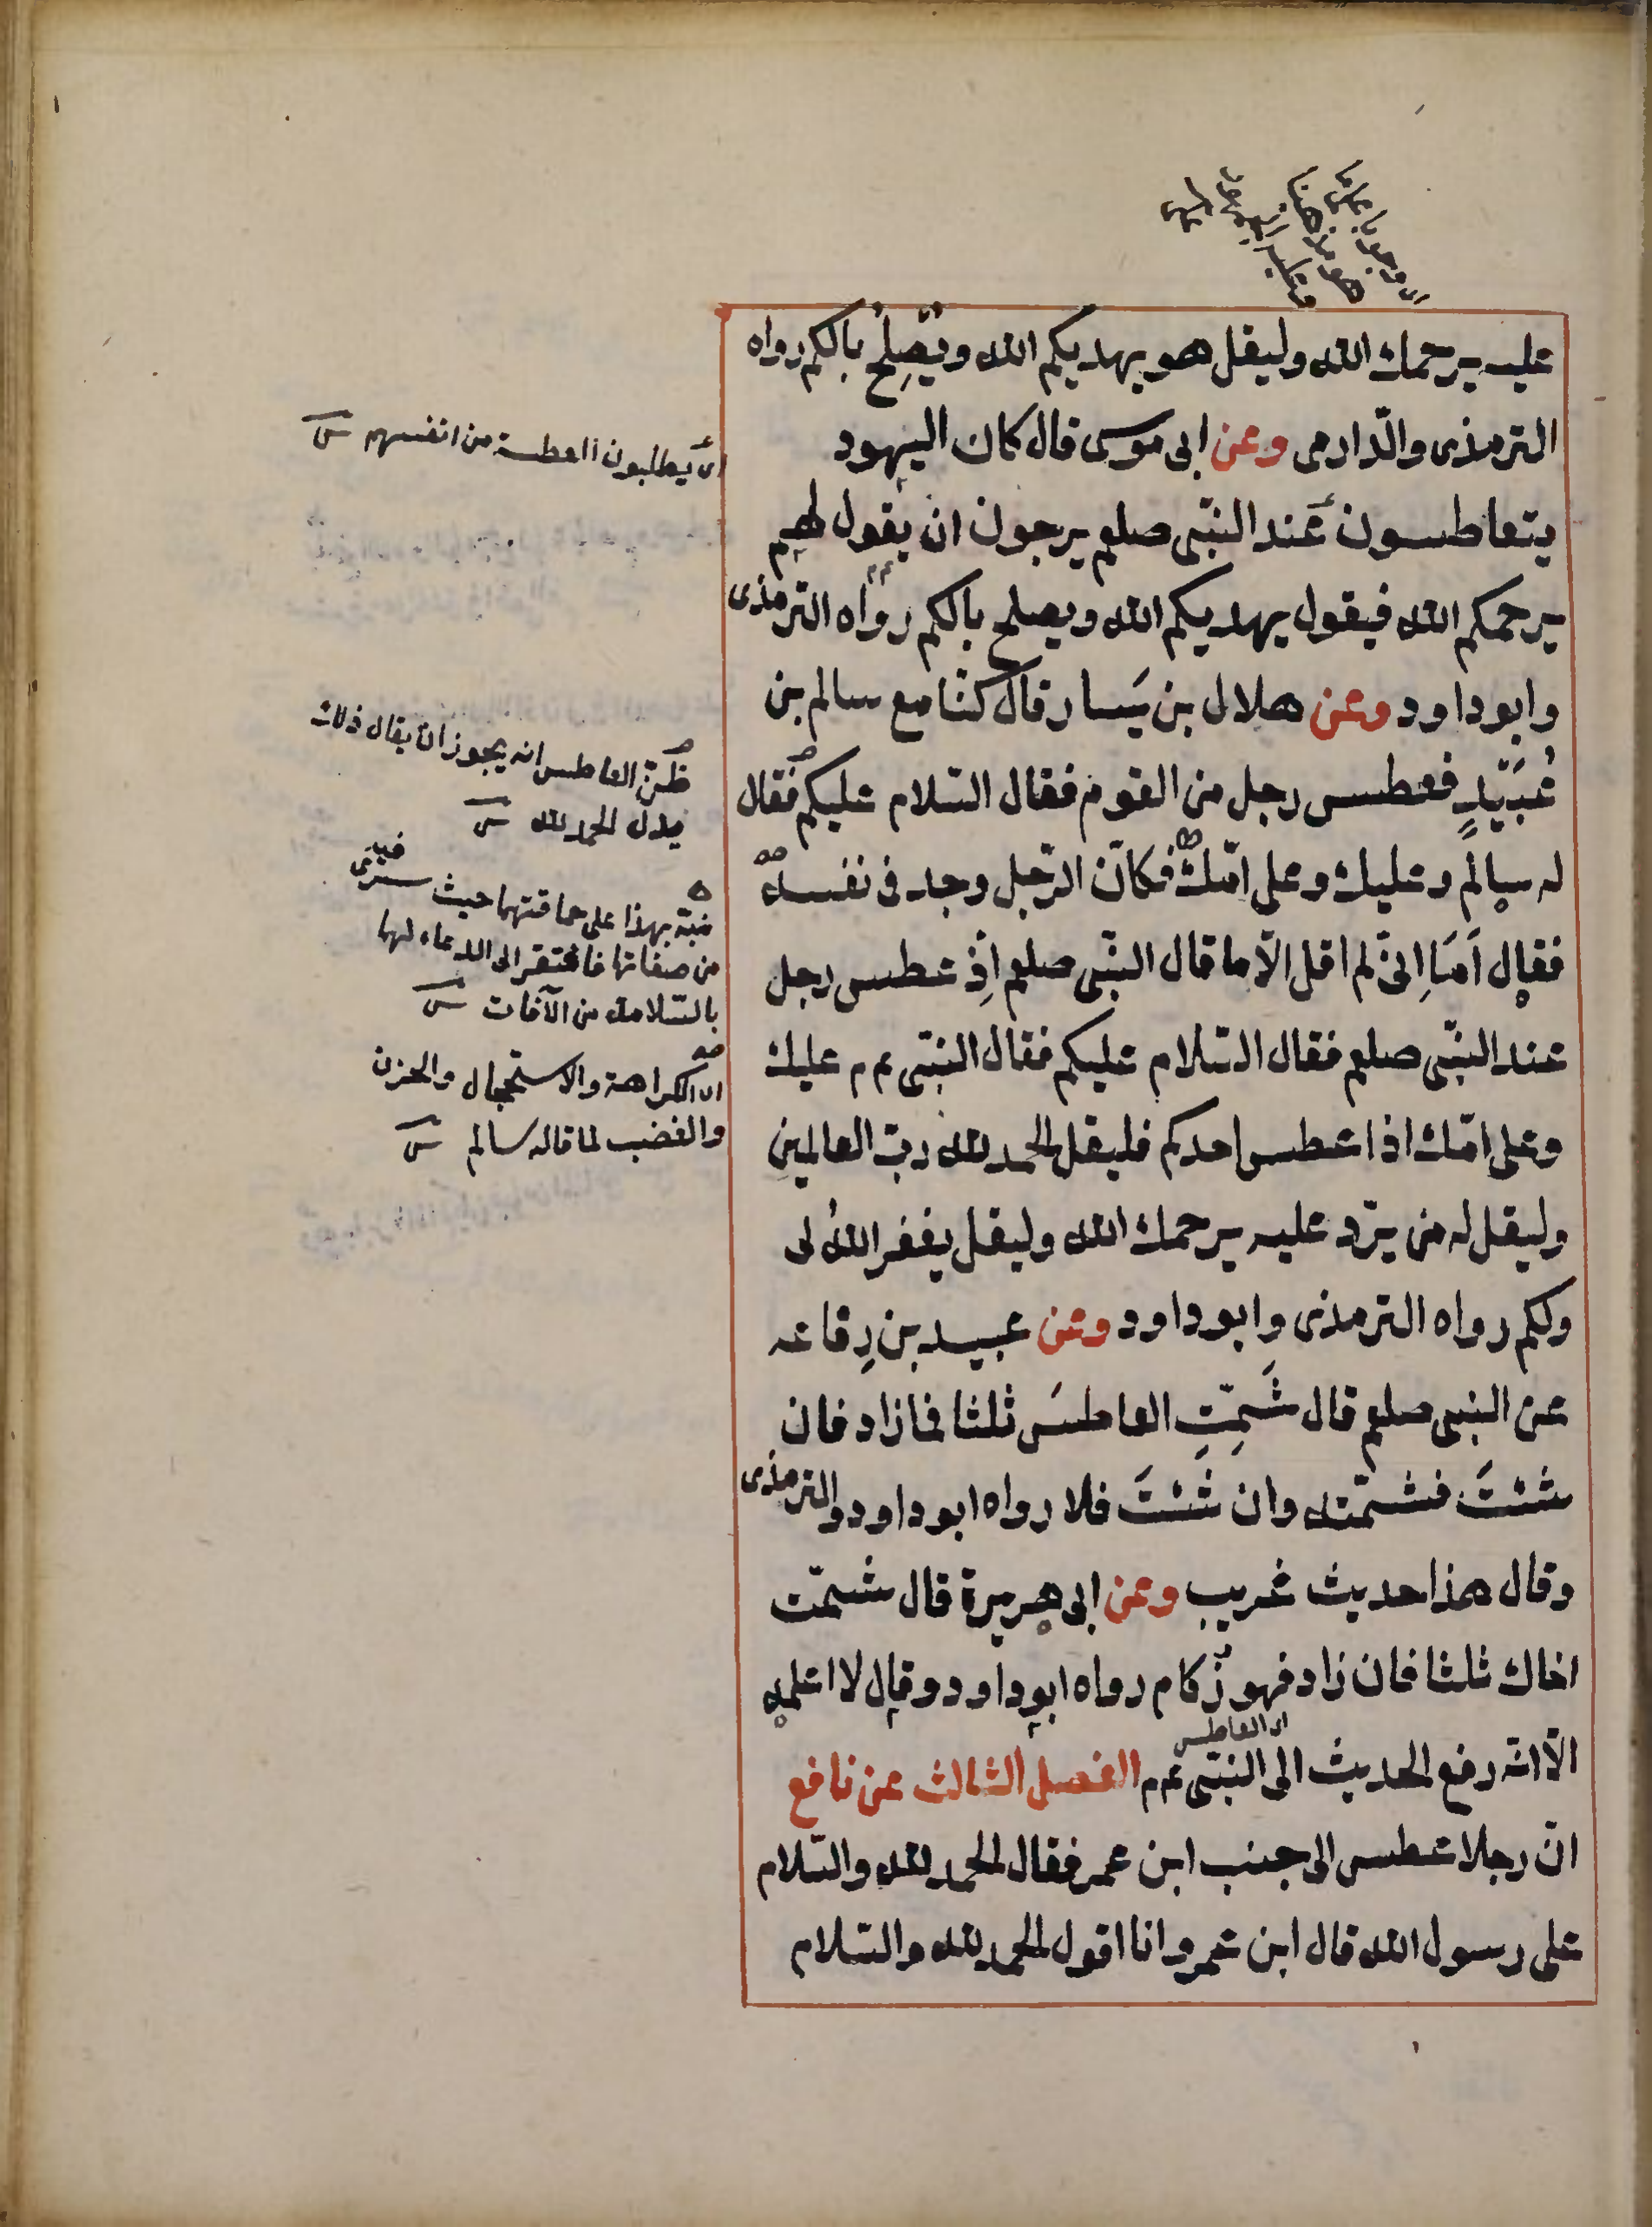 عليه يرحمك الله وليقل هو يهديكم الله ويُصلِحُ بالكم رواه
الترمذى والدّارمى وعن ابى موسى قال كان اليهود
يتعاطسون عند النبّى صلعم يرجون ان يقول لهم
يرحمكم الله فيقول يهديكم الله ويصلح بالكم رواه الترمذى
وابو داود وعن هلال بن يَسار قال كنّا مع سالم بن
عُبَيْدٍ فعطس رجل من القوم فقال السّلام عليكم فقال
له سالم وعليك وعلى امّك فكانّ الرّجل وجد فى نفسه
فقال اَمَا اِنّى لم اقل الّا ما قال النبّى صلعم اِذ عطس رجل
عند النبّى صلعم فقال السّلام عليكم فقال النبّى عم عليك
وعلى امّك اذا عطس احدكم فليقل الحمد لله ربّ العالمين
وليقل له من يردّ عليه يرحمك الله وليقل يغفر اللهُ لى
ولكم رواه الترمذى وابو داود وعن عبيد بن رِفاعه
عن النبى صلعم قال شَمِّتِ العاطسَ ثلثا فما زاد فان
شئتَ فشمّته وان شئتَ فلا رواه ابو داود والترمذى
وقال هذا حديث غريب وعن ابى هريرة قال شمّت
اخاك ثلثا فان زاد فهو زُكام رواه ابو داود وقال لا اعلمه
الّا انّه رفع الحديث الى النبّى عم الفصل الثالث عن نافع
اى العاطس
انّ رجلا عطس الى جنب ابن عمر فقال الحمد لله والسّلام
على رسول الله قال ابن عمر وانا اقول الحمد لله والسّلام
اى يطلبون العطسة من انفسهم
ظنّ العاطس انه يجوز ان يقال ذلك
بدل الحمد لله
نبّه بهذا على حماقتهما حيث سرى فيه
من صفاتها فافتقر الى الدعاء لهما
بالسّلامة من الآفات
اى الكراهة والاستخجال والحزن
والغضب لما قاله سالم